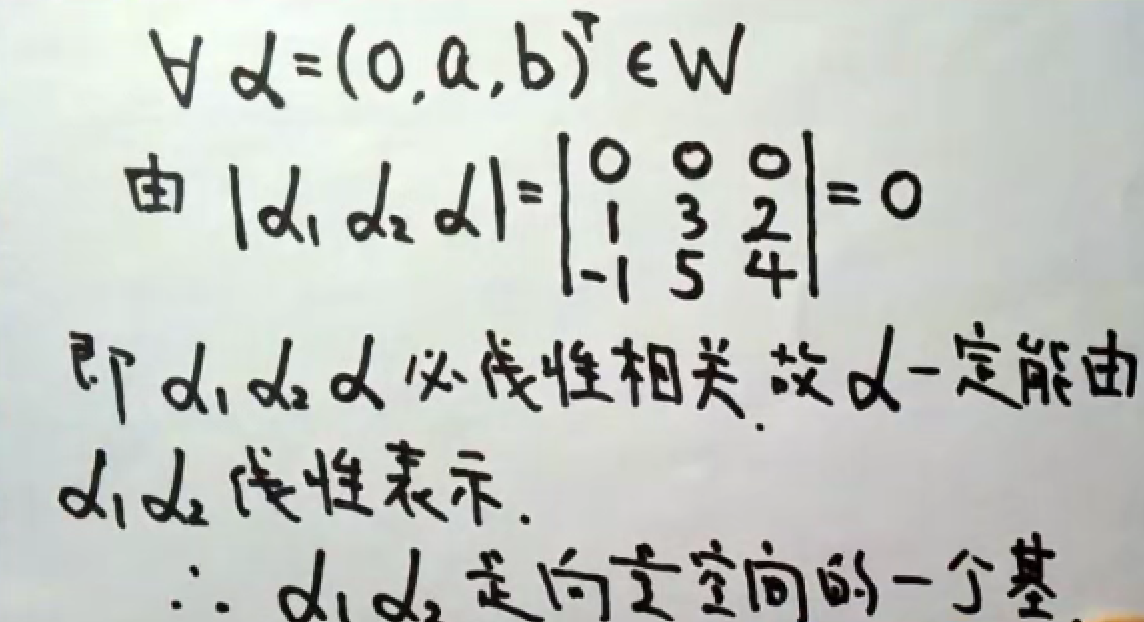 ∀ α=(0,a,b)ᵀ∈W
由 |α₁ α₂ α|=|0 0 0
1 3 2
-1 5 4|=0
即 α₁ α₂ α 必线性相关.故 α 一定能由
α₁ α₂ 线性表示.
∴ α₁ α₂ 是向量空间的一个基.